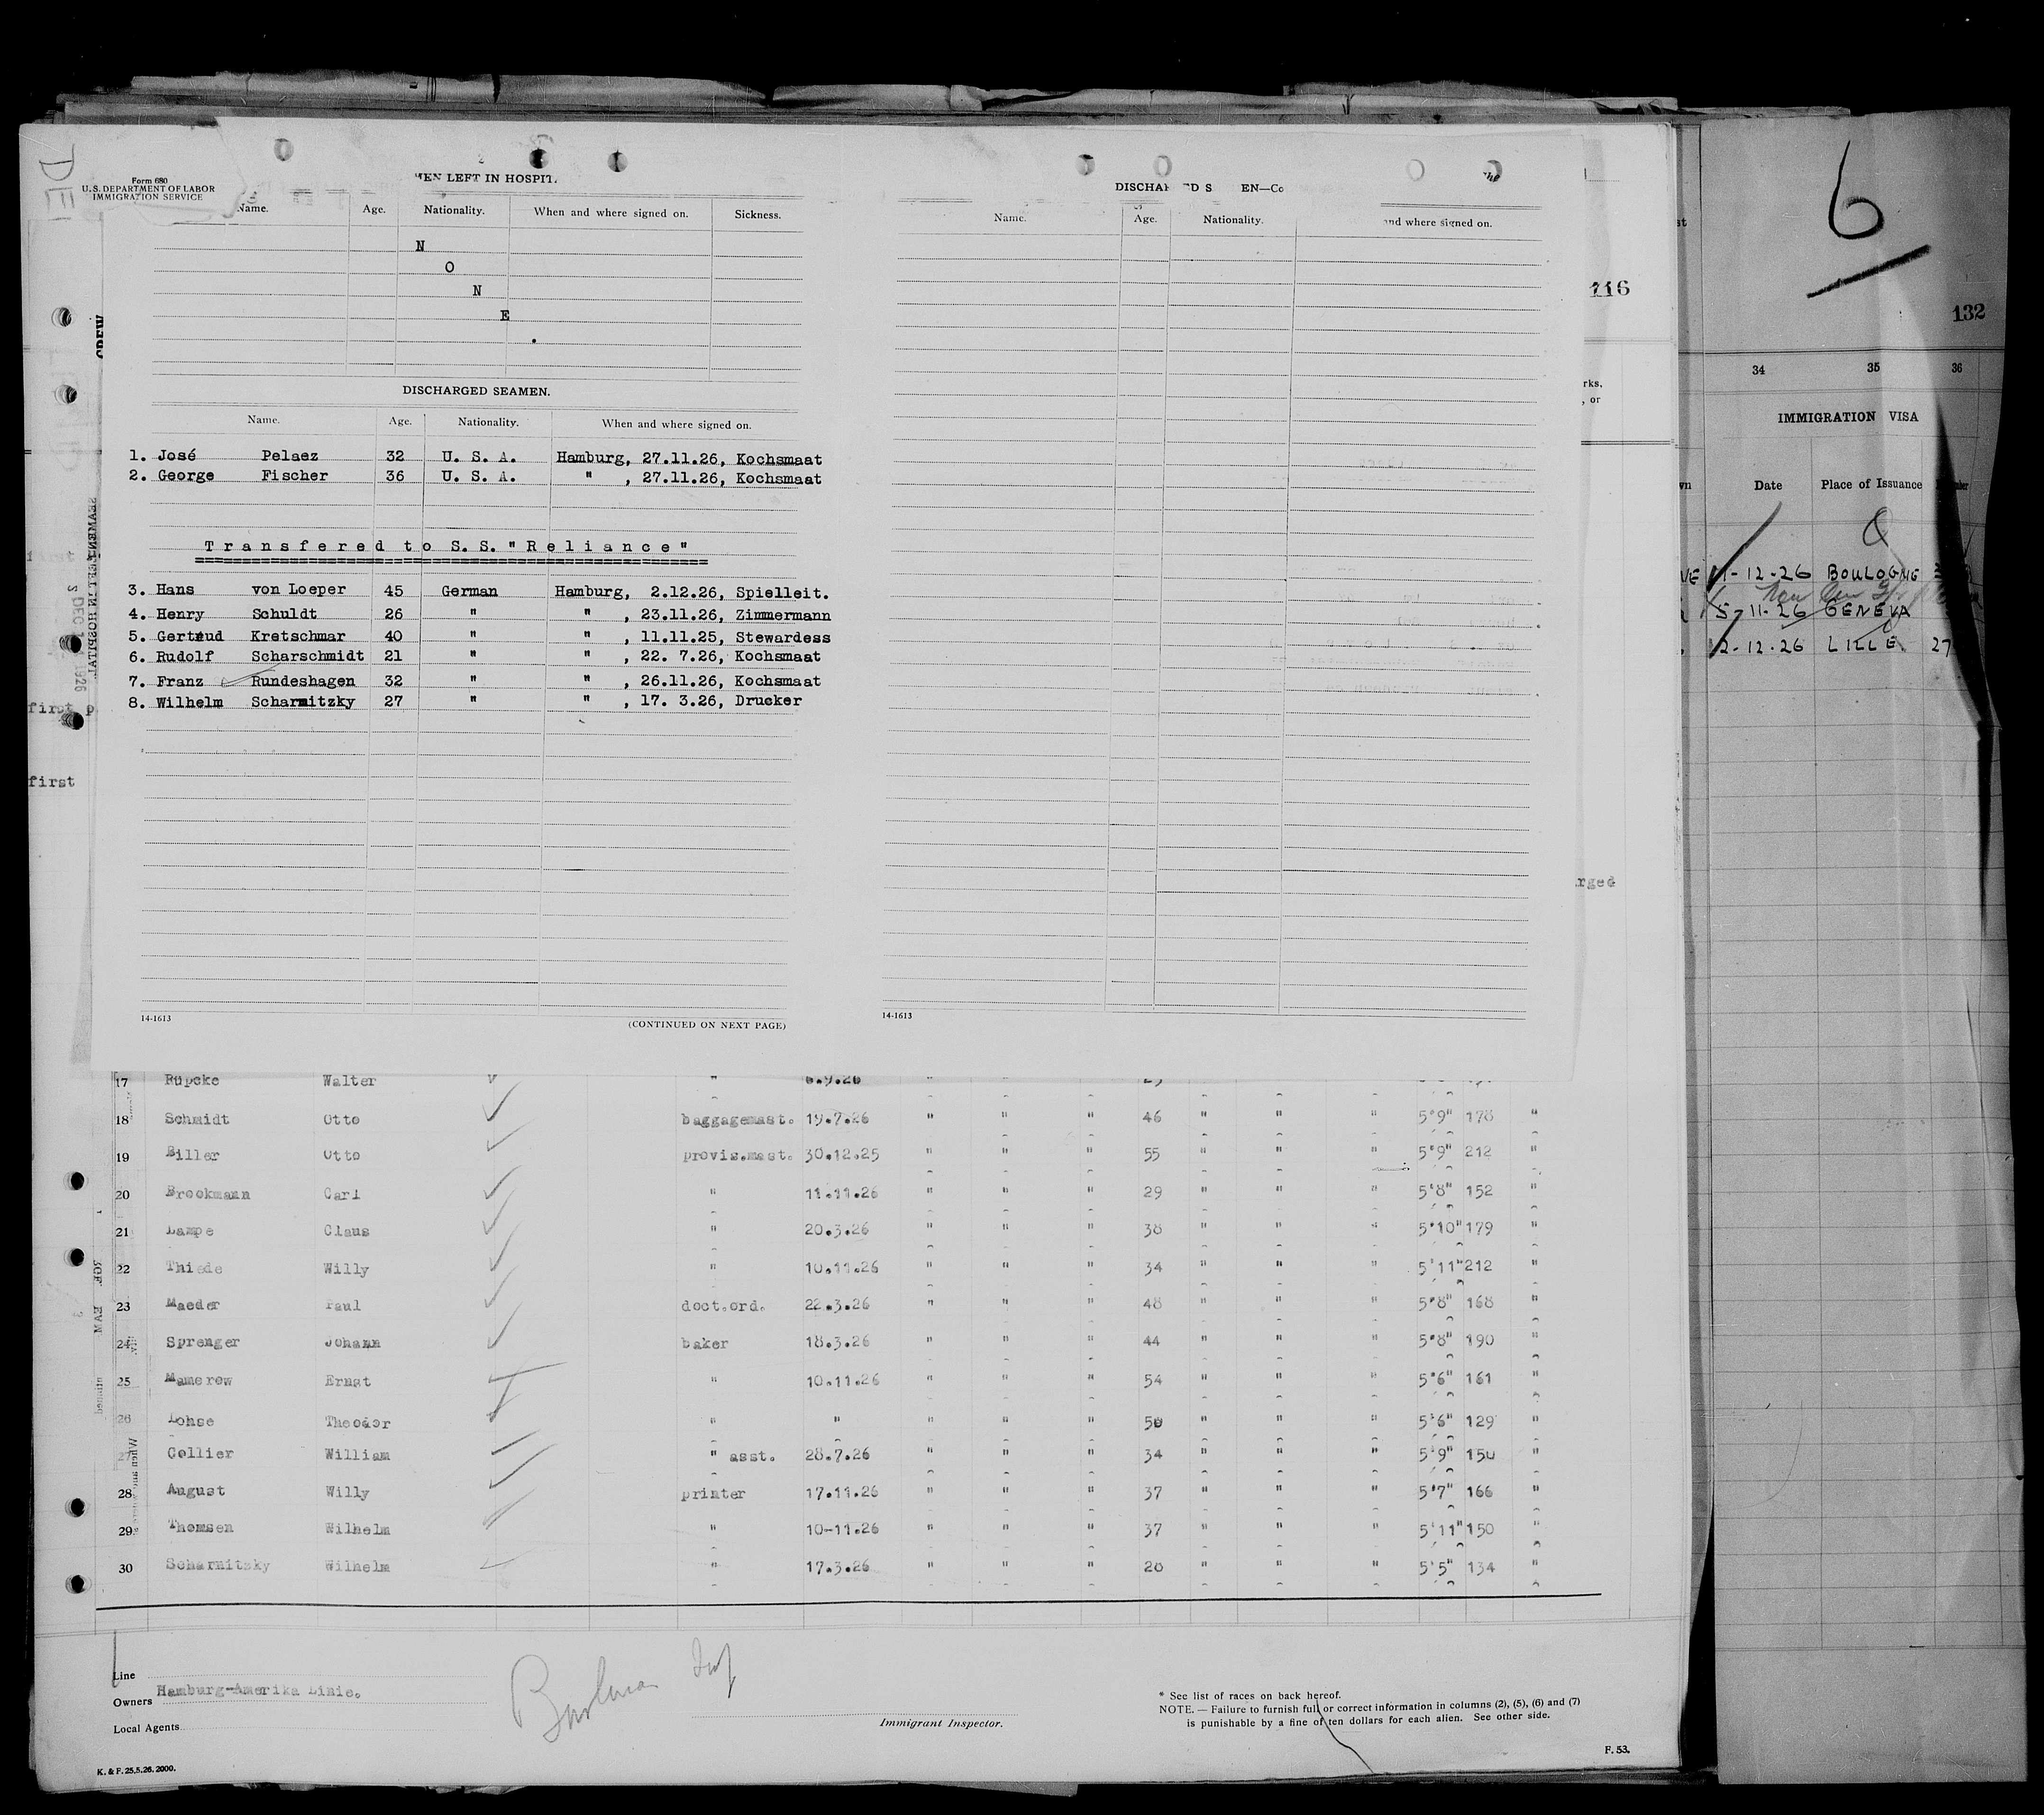 Form 680
U.S. DEPARTMENT OF LABOR
IMMIGRATION SERVICE
MEN LEFT IN HOSPIT
Name. Age. Nationality. When and where signed on. Sickness.
N
O
N
E
.
DISCHARGED SEAMEN.
Name. Age. Nationality. When and where signed on.
1. José Pelaez 32 U. S. A. Hamburg, 27.11.26, Kochsmaat
2. George Fischer 36 U. S. A. " , 27.11.26, Kochsmaat
Transfered to S.S. "Reliance"
3. Hans von Loeper 45 German Hamburg, 2.12.26, Spielleit.
4. Henry Schuldt 26 " " , 23.11.26, Zimmermann
5. Gertrud Kretschmar 40 " " , 11.11.25, Stewardess
6. Rudolf Scharschmidt 21 " " , 22. 7.26, Kochsmaat
7. Franz Rundeshagen 32 " " , 26.11.26, Kochsmaat
8. Wilhelm Scharmitzky 27 " " , 17. 3.26, Drucker
14-1613
(CONTINUED ON NEXT PAGE)
DISCHA D S EN—Co
the
Name. Age. Nationality. and where signed on.
14-1613
CREW
SEAMEN LEFT IN HOSPITAL
first p
first
716
rks,
, or
rged
6
132
34 35 36
IMMIGRATION VISA
Date Place of Issuance
1-12-26 BOULOGNE
5-11-26 GENEVA
2-12-26 LILLE 27
17 Rüpcke Walter " 6.9.26 " " "
18 Schmidt Otto baggagemast. 19.7.26 " " " 46 " " " 5'9" 178 "
19 Biller Otto provis.mast. 30.12.25 " " " 55 " " " 5'9" 212 "
20 Brockmann Carl " 11.11.26 " " " 29 " " " 5'8" 152 "
21 Lampe Claus " 20.3.26 " " " 38 " " " 5'10" 179 "
22 Thiede Willy " 10.11.26 " " " 34 " " " 5'11" 212 "
23 Maeder Paul doct.ord. 22.3.26 " " " 48 " " " 5'8" 168 "
24 Sprenger Johann baker 18.3.26 " " " 44 " " " 5'8" 190 "
25 Mamerow Ernst " 10.11.26 " " " 54 " " " 5'6" 161 "
26 Lohse Theodor " " " " " 50 " " " 5'6" 129 "
27 Collier William " asst. 28.7.26 " " " 34 " " " 5'9" 150 "
28 August Willy printer 17.11.26 " " " 37 " " " 5'7" 166 "
29 Thomsen Wilhelm " 10-11.26 " " " 37 " " " 5'11" 150 "
30 Scharmitzky Wilhelm " 17.3.26 " " " 26 " " " 5'5" 134 "
Line
Owners Hamburg-Amerika Linie.
Local Agents
Immigrant Inspector.
* See list of races on back hereof.
NOTE. — Failure to furnish full or correct information in columns (2), (5), (6) and (7)
is punishable by a fine of ten dollars for each alien. See other side.
K. & F. 25.5.26. 2000.
F. 53.